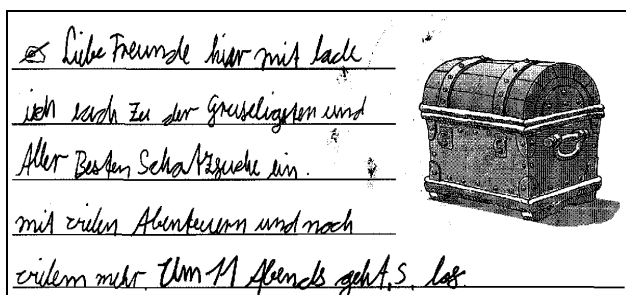 Liebe Freunde hier mit lade
ich euch zu der Gruseligsten und
Aller Besten Schatzsuche ein.
mit vielen Abenteuern und noch
vielem mehr. Um 11 Abends geht,s, los.